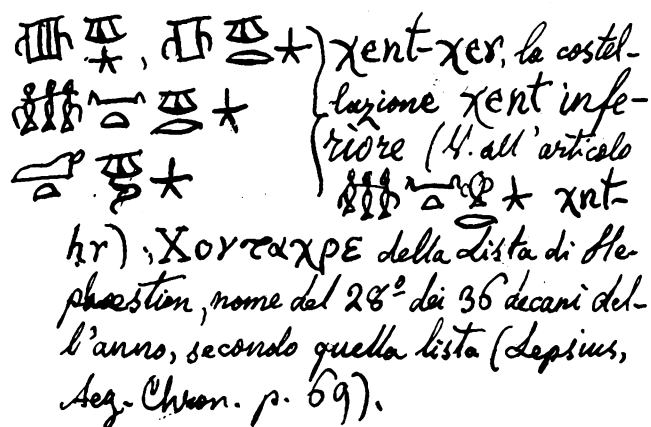 χent-χer, la costel-
lazione χent infe-
riore (V. all'articolo
χnt-
ḥr); Χονταχρε della Lista di He-
phaestion, nome del 28º dei 36 decani del-
l'anno, secondo quella lista (Lepsius,
Aeg. Chron. p. 69).